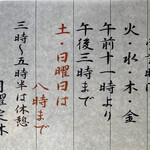 火・水・木・金
午前十一時より
午後三時まで
土・日曜日は
八時まで
三時〜五時半は休憩
月曜定休